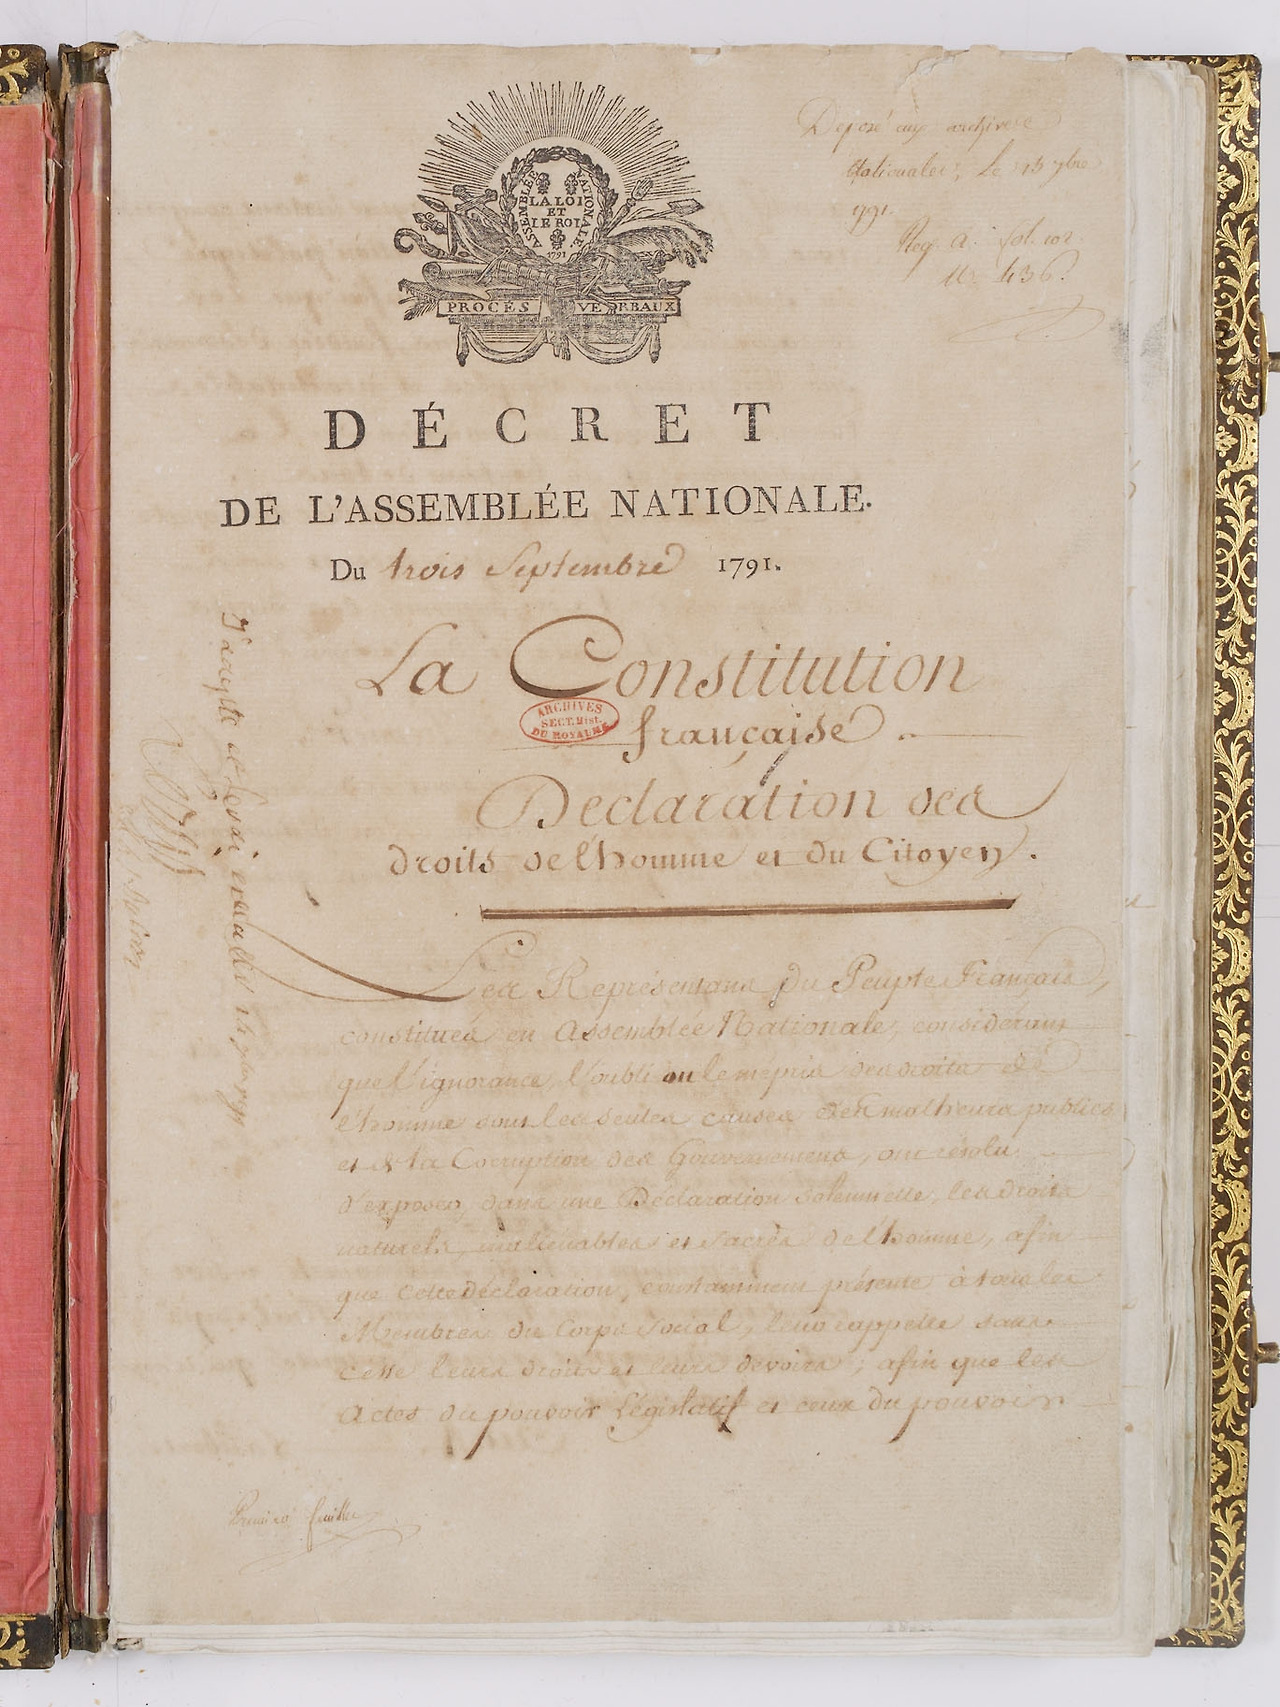 ASSEMBLÉE NATIONALE.
LA LOI
ET
LE ROI
1791
PROCÈS VERBAUX
Deposé aux archives
Nationales, Le 13 7bre
1791.
Reg. A. fol. 102.
n. 436.
DÉCRET
DE L'ASSEMBLÉE NATIONALE.
Du trois Septembre 1791.
La Constitution
ARCHIVES
SECT. Hist.
DU ROYAUME
française
Declaration des
droits de l'homme et du Citoyen.
Les Représentans du Peuple Français,
constitués en Assemblée Nationale, considérant
que l'ignorance, l'oubli ou le mépris des droits de
l'homme sont les seules causes des malheurs publics
et de la Corruption des Gouvernemens, ont résolu
d'exposer, dans une Déclaration solennelle, les droits
naturels, inalienables et sacrés de l'homme, afin
que cette déclaration, constamment présente à tous les
Membres du Corps social, leur rappelle sans
cesse leurs droits et leurs devoirs; afin que les
Actes du pouvoir Législatif et ceux du pouvoir
J'accepte et ferai exécuter 14 7bre 1791
Louis
Premiere feuille